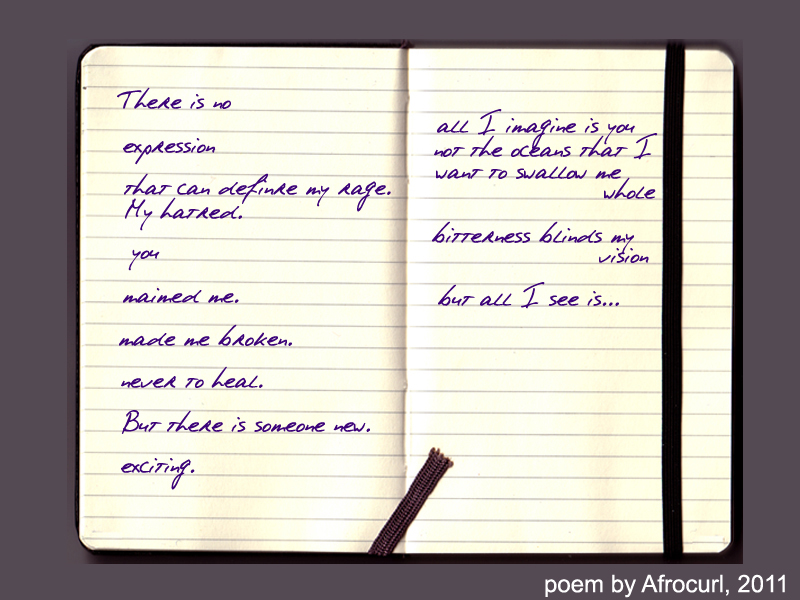 There is no
expression
that can definre my rage.
My hatred.
you
maimed me.
made me broken.
never to heal.
But there is someone new.
exciting.
all I imagine is you
not the oceans that I
want to swallow me
whole
bitterness blinds my
vision
but all I see is...
poem by Afrocurl, 2011